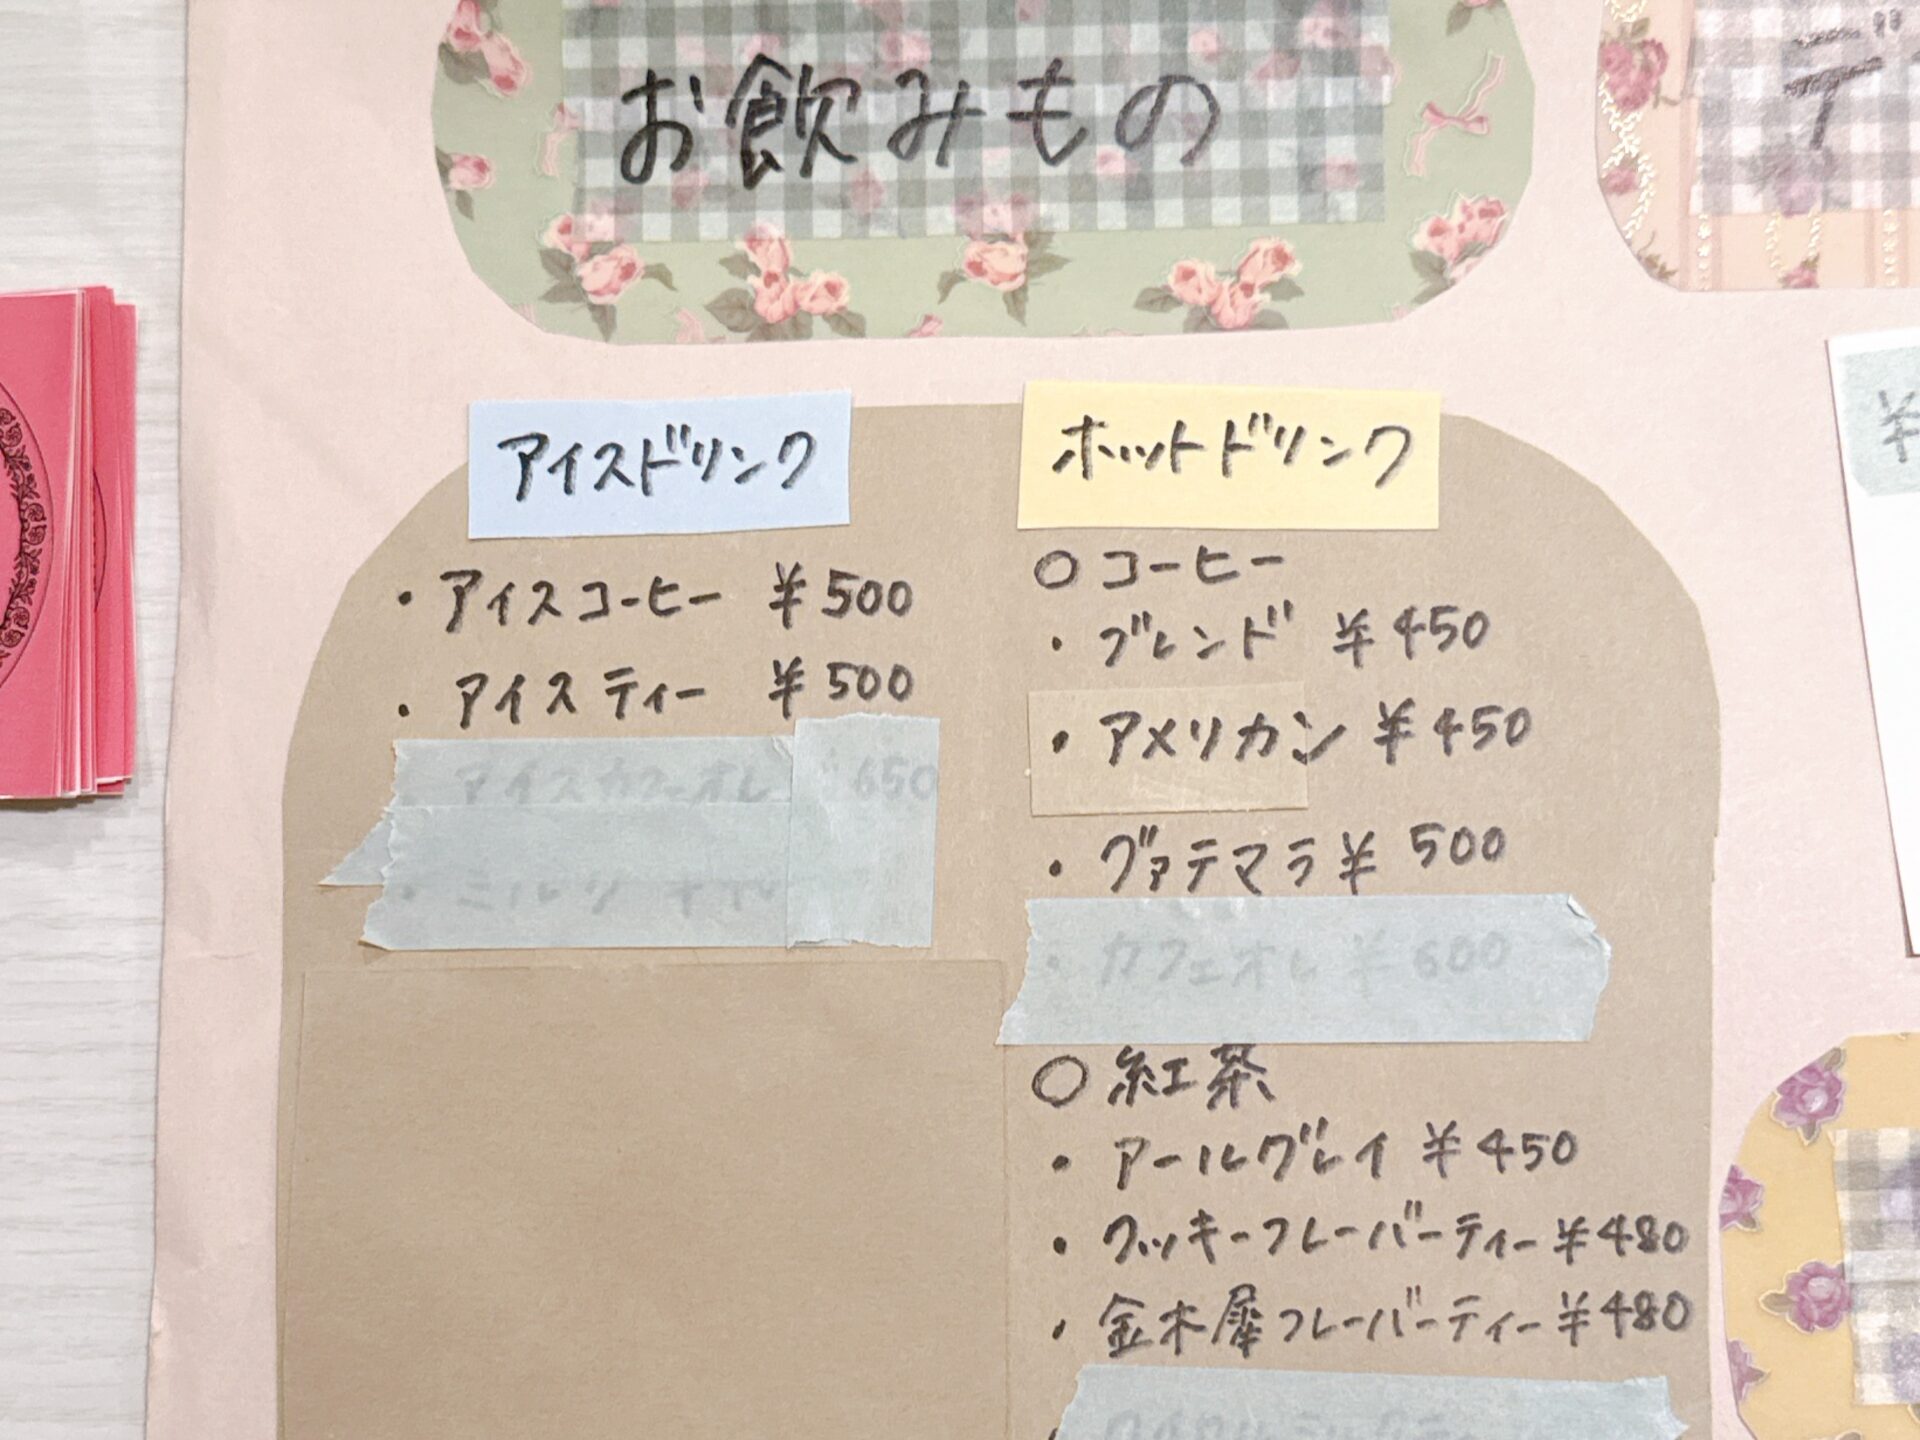 お飲みもの
アイスドリンク
・アイスコーヒー ¥500
・アイスティー ¥500
・アイスカフェオレ 650
・ミルク
ホットドリンク
○コーヒー
・ブレンド ¥450
・アメリカン ¥450
・グァテマラ ¥500
・カフェオレ ¥600
○紅茶
・アールグレイ ¥450
・クッキーフレーバーティー ¥480
・金木犀フレーバーティー ¥480
¥